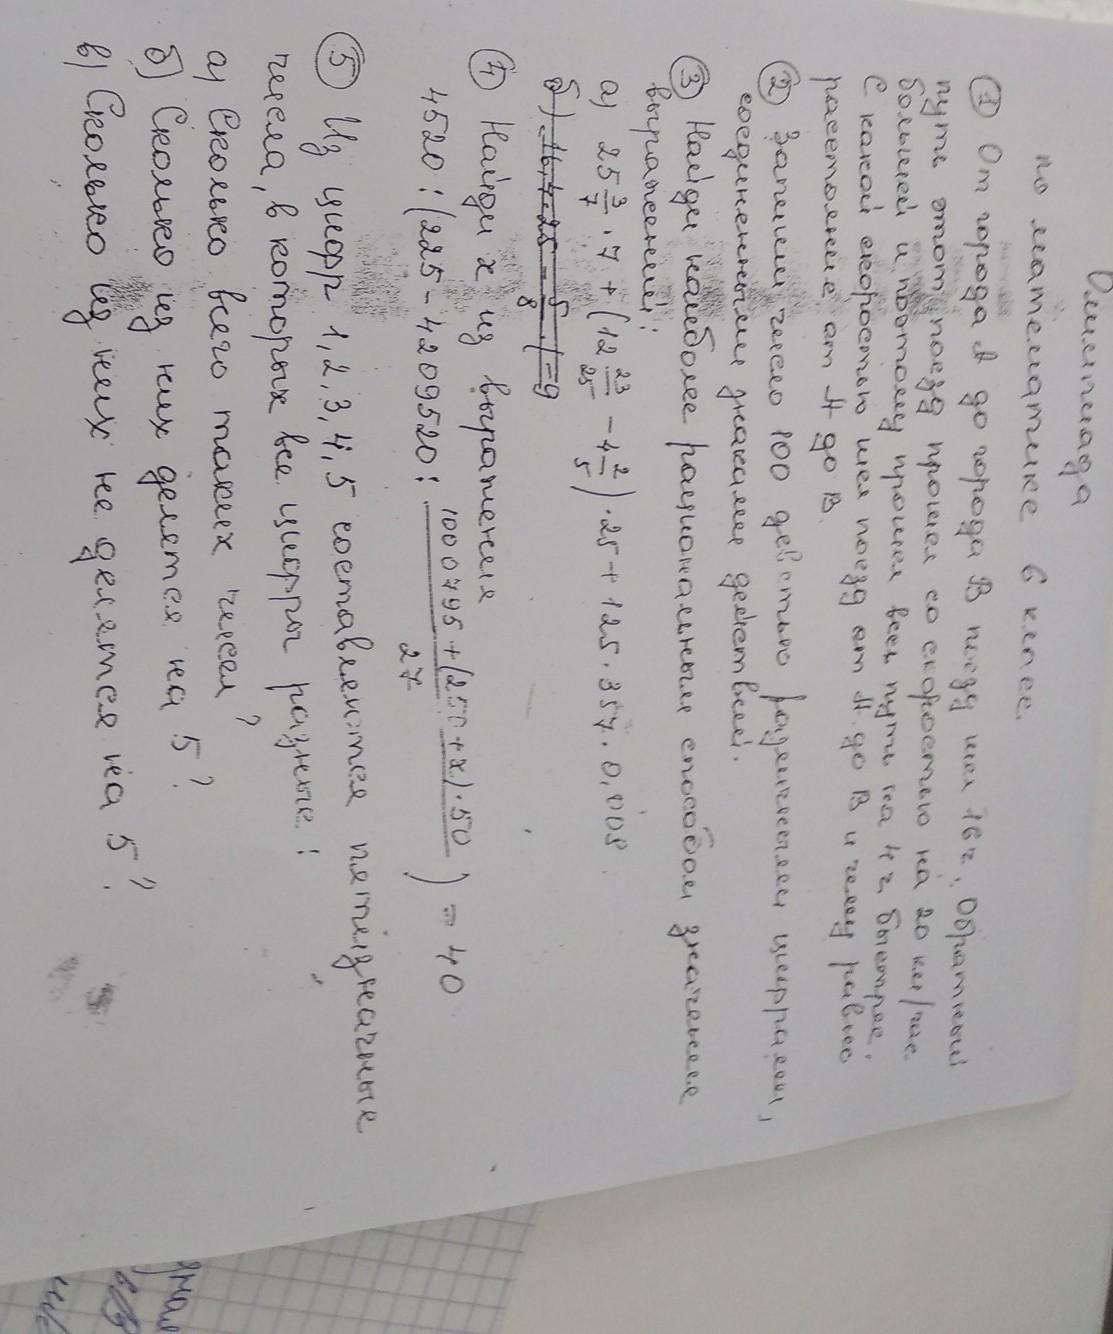 Олимпиада
по математике 6 класс.
① От города А до города В поезд шел 16 ч. Обратный
путь этот поезд прошел со скоростью на 20 км/час
большей и поэтому прошел весь путь на 4 ч быстрее.
С какой скоростью шел поезд от А до В и чему равно
расстояние от А до В.
② Запиши число 100 девятью различными цифрами,
соединенными знаками действий.
③ Найди наиболее рациональным способом значение
выражений:
а) 25 3/7 · 7 + (12 23/25 - 4 2/5) · 25 + 125 · 357 · 0,008
④ Найди х из выражения
4520 : (225 - 4209520 : 1000795 + (250 + х) · 50 / 27) = 40
⑤ Из цифр 1, 2, 3, 4, 5 составляются пятизначные
числа, в которых все цифры разные!
а) Сколько всего таких чисел?
б) Сколько из них делятся на 5?
в) Сколько из них не делятся на 5?